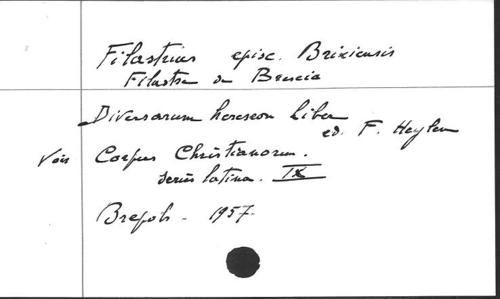 Filastrius episc. Brixiensis
Filastre de Brescia
Diversarum hereseon liber
ed. F. Heylen
Voir Corpus Christianorum.
series latina. IX
Brepols - 1957.